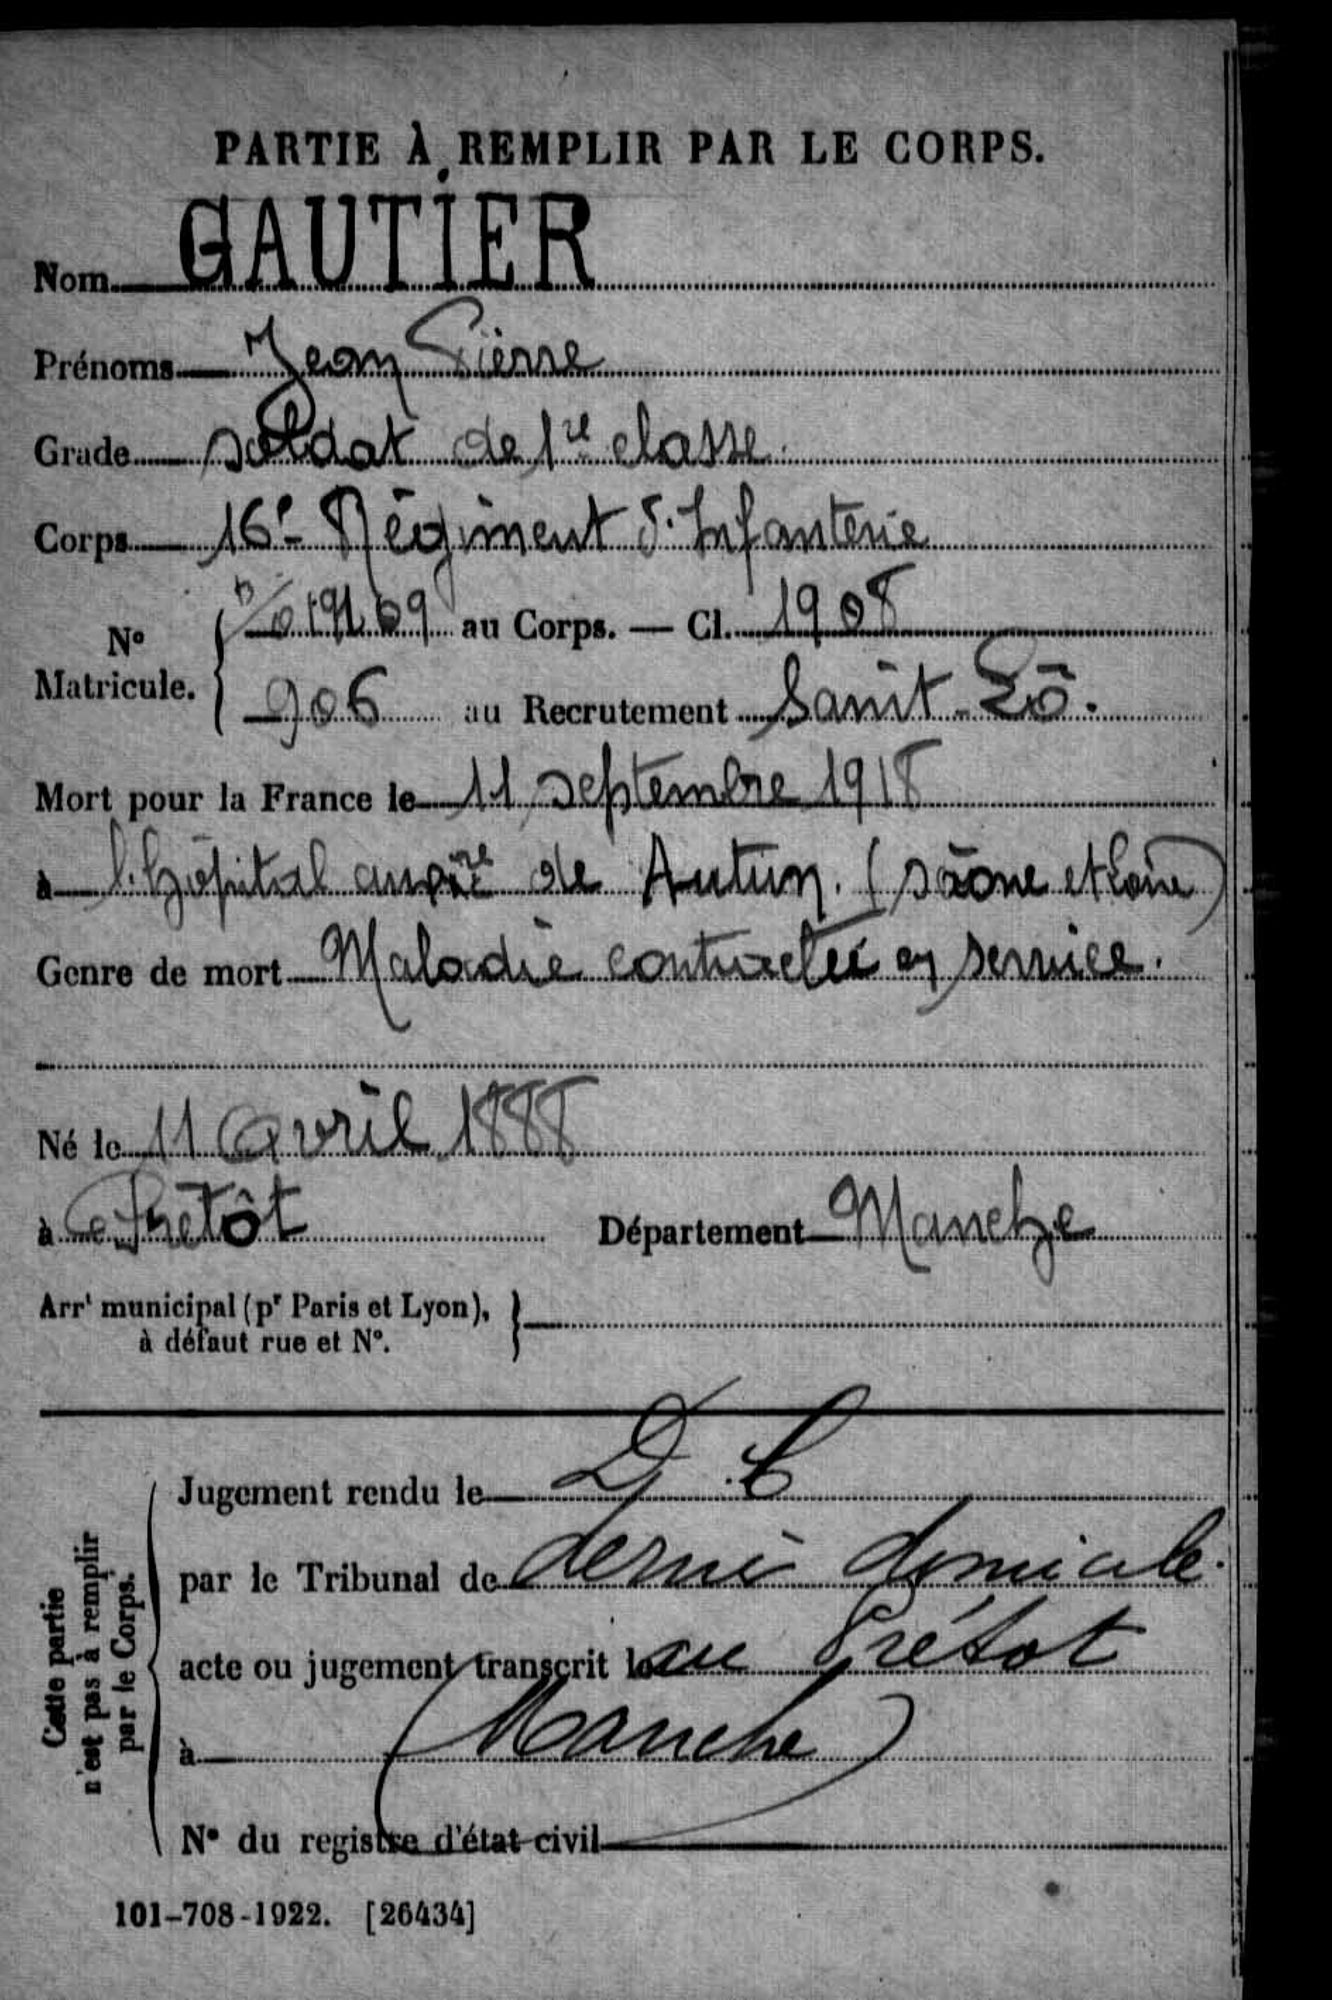 PARTIE À REMPLIR PAR LE CORPS.
Nom GAUTIER
Prénoms Jean Pierre
Grade soldat de 1re classe.
Corps 16e Régiment d'Infanterie
N° Matricule.
au Corps. — Cl. 1908
906 au Recrutement Saint-Lô.
Mort pour la France le 11 septembre 1918
à l'hôpital de Autun. (Saône et Loire)
Genre de mort Maladie contractée en service.
Né le 11 avril 1888
à Le Prétôt Département Manche
Arrt municipal (pr Paris et Lyon), à défaut rue et N°.
Cette partie n'est pas à remplir par le Corps.
Jugement rendu le D. C
par le Tribunal de dernier domicile.
acte ou jugement transcrit le au Prétot
à (Manche)
N° du registre d'état civil
101-708-1922. [26434]